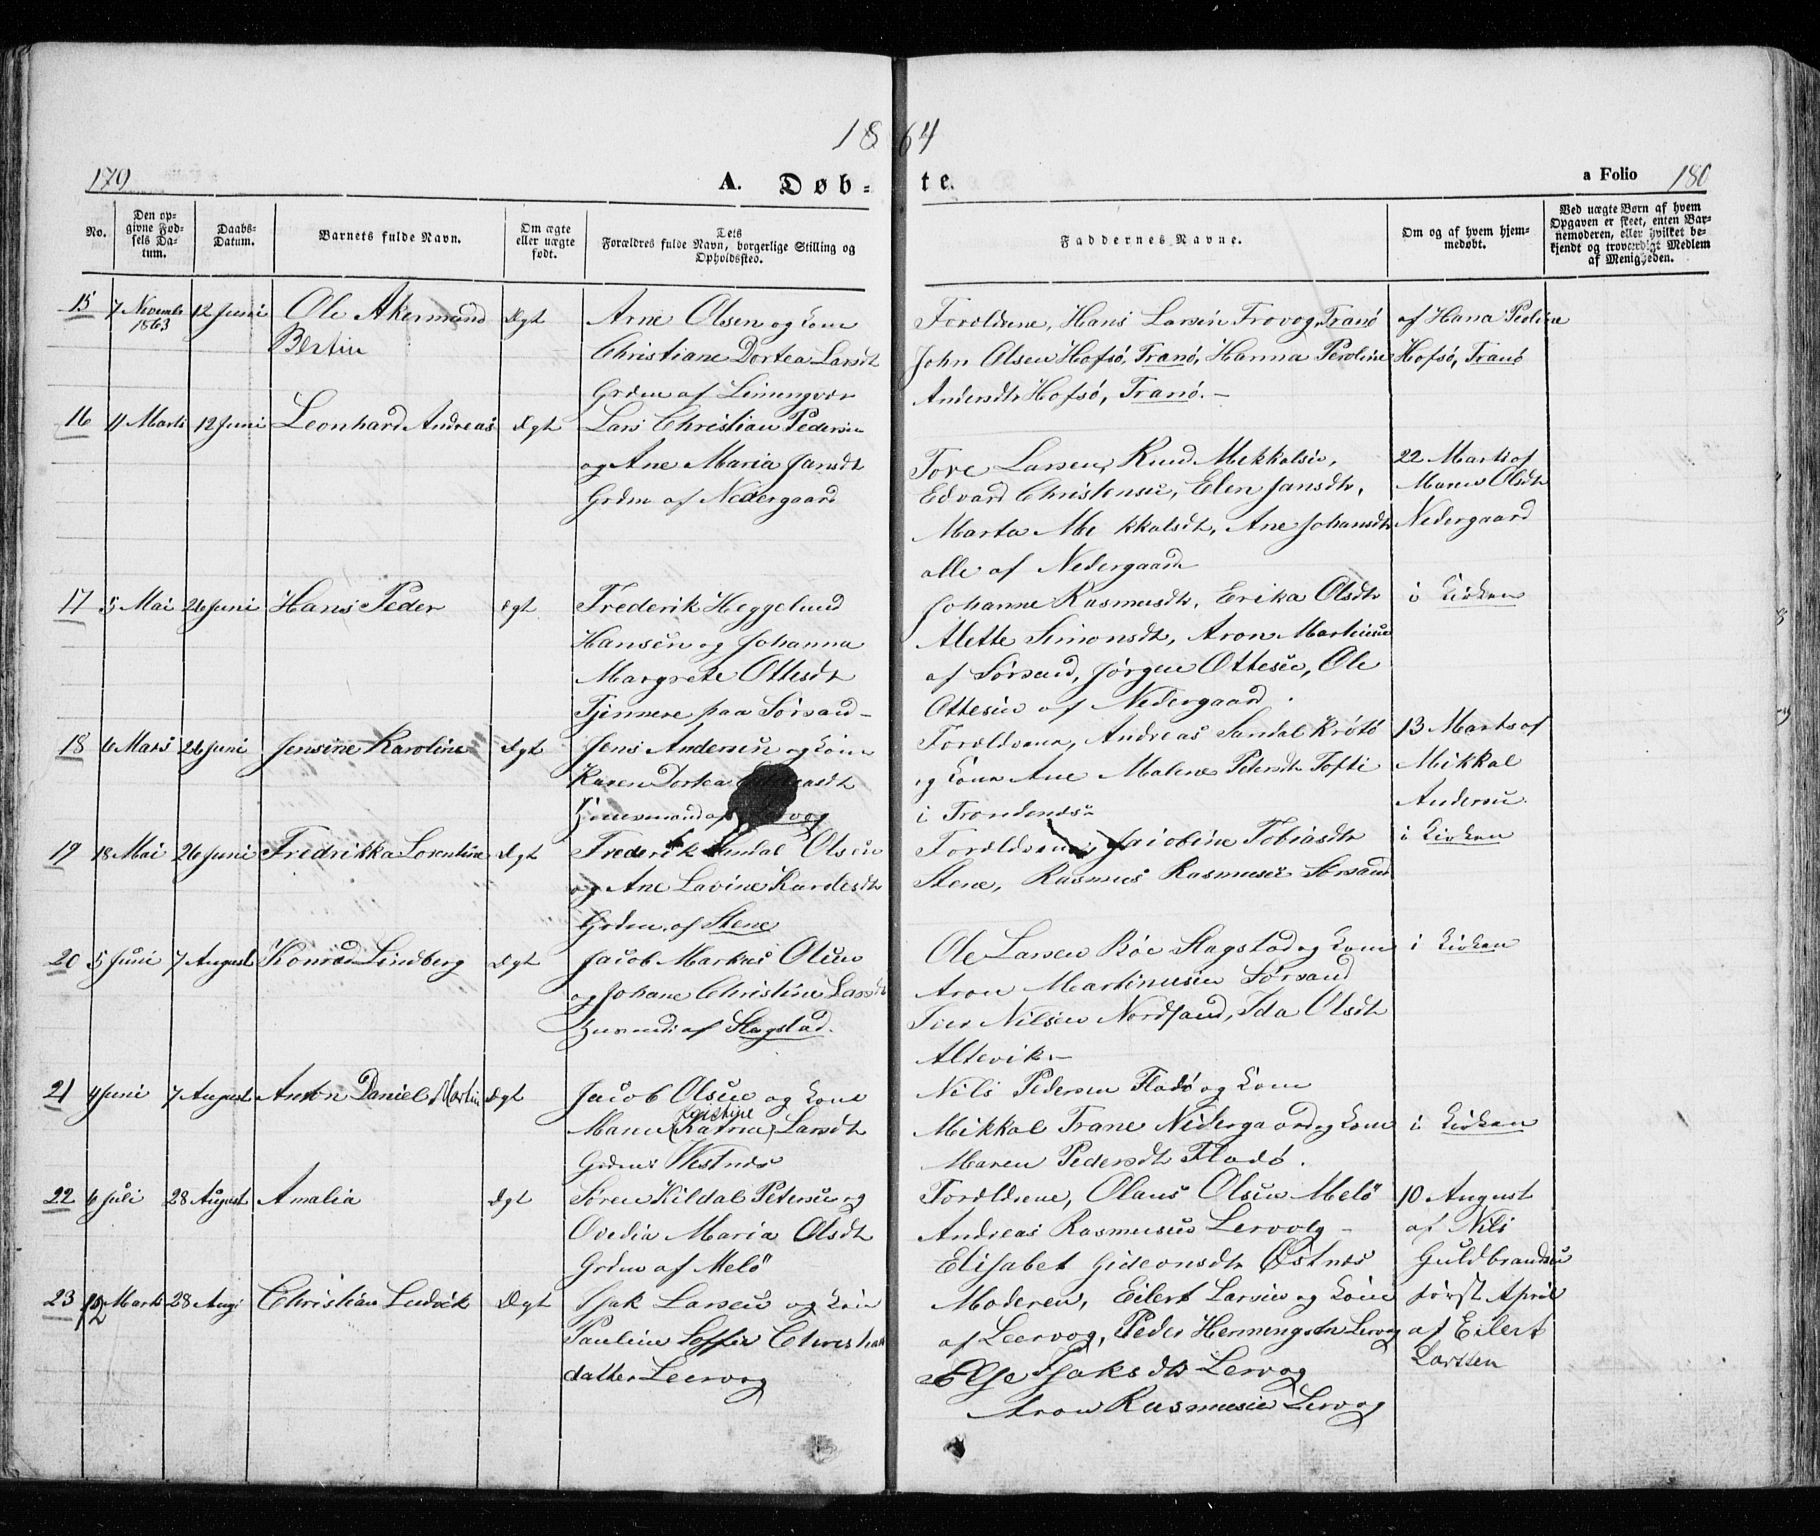 1864
179
A. Døb-te.
a Folio 180
No.
Den op-
givne Fød-
sels Da-
tum.
Daabs-
Datum.
Barnets fulde Navn.
Om ægte
eller uægte
født.
Dets
Forældres fulde Navn, borgerlige Stilling og
Opholdssted.
Faddernes Navne.
Om og af hvem hjem-
medøbt.
Ved uægte Børn af hvem
Opgaven er skeet, enten Bar-
nemoderen, eller hvilket be-
kjendt og troværdigt Medlem
af Menigheden.
15 7 Novembr 1863 12 Juni Ole Akermand Bertin Ægt
Arne Olsen og Kone
Christiane Dortea Larsdt
Grdm af
Foreldrene, Hans Larsen Frovog, Tranø
John Olsen Hofsø, Tranø, Hanna Peroline
Andersdtr Hofsø, Tranø.
af Hana Peoline
Hofsø, Tranø
16 4 Marts 12 Juni Leonhard Andreas Ægt
Lars Christian Pedersen
og Ane Maria Jansdt
Grdm af Nedergaard
Tore Larsen, Knud Mekkalsen,
Edvard Christensen, Elen Jansdtr,
Marta Mekkalsdt, Ane Johansdtr
alle af Nedergaard
22 Marts af
Maren Olsdtr
Nedergaard
17 5 Mai 26 Juni Hans Peder Ægt
Frederik Heggelund
Hansen og Johanna
Margrete Ottesdt
Tjennere paa Sørsand
Johanne Rasmusdtr, Erika Olsdtr
Alette Simonsdt, Aron Martinsen
af Sørsand, Jørgen Ottesen, Ole
Ottesen af Nedergaard.
i Kirken
18 6 Mars 26 Juni Jensine Karoline Ægt
Jens Andersen og Kone
Karen Dortea
Husmand af
Foreldrene, Andreas Sandal Krøtø
og Kone Ane Malene Petersdtr Tofti
i Trondenes
13 Marts af
Mikkal
Andersen
19 18 Mai 26 Juni Fredrikka Lorentine Ægt
Frederik Olsen
og Ane Lavine
Grdm. af Stene
Foreldrene, Jaiobine Tobiasdtr
Stene, Rasmus Rasmusen Sørsand
i Kirken
20 5 Juni 7 August Konrad Lindberg Ægt
Jacob Markus Olsen
og Johane Christine Larsdt
af Slagstad.
Ole Larsen Røe Slagstad og Kone
Aron Martinusen Sørsand
Iver Nilsen Nordsand, Ida Olsdtr
Altevik.
i Kirken
21 4 Juni 7 August Anton Daniel Martin Ægt
Jacob Olsen og Kone
Maren (Katrine) Kristine Larsdt
Grdm Vestnes
Nils Pedersen Fladø og Kone
Mikkal Trane Nedergaard og Kone
Maren Pedersdt Fladø.
i Kirken
22 6 Juli 28 August Amalia Ægt
Søren Kildal Petersen og
Ovedia Maria Olsdt
Grdm af Melø
Foreldrene, Olaus Olsen Melø
Andreas Rasmusen Lervog
Elisabet Gideonsdtr Østnes
10 August
af Nils
Guldbrandsen
23 12 Marts 28 Aug Christian Ludvik Ægt
Isak Larsen og Kone
Pauline Soffie Christian
datter Leervog
Moderen, Eilert Larsen og Kone
af Leervog, Peder Henningsen Lervog
Else Isaksdtr Lervog
Aron Rasmusen Lervog
først April
af Eilert
Larssen